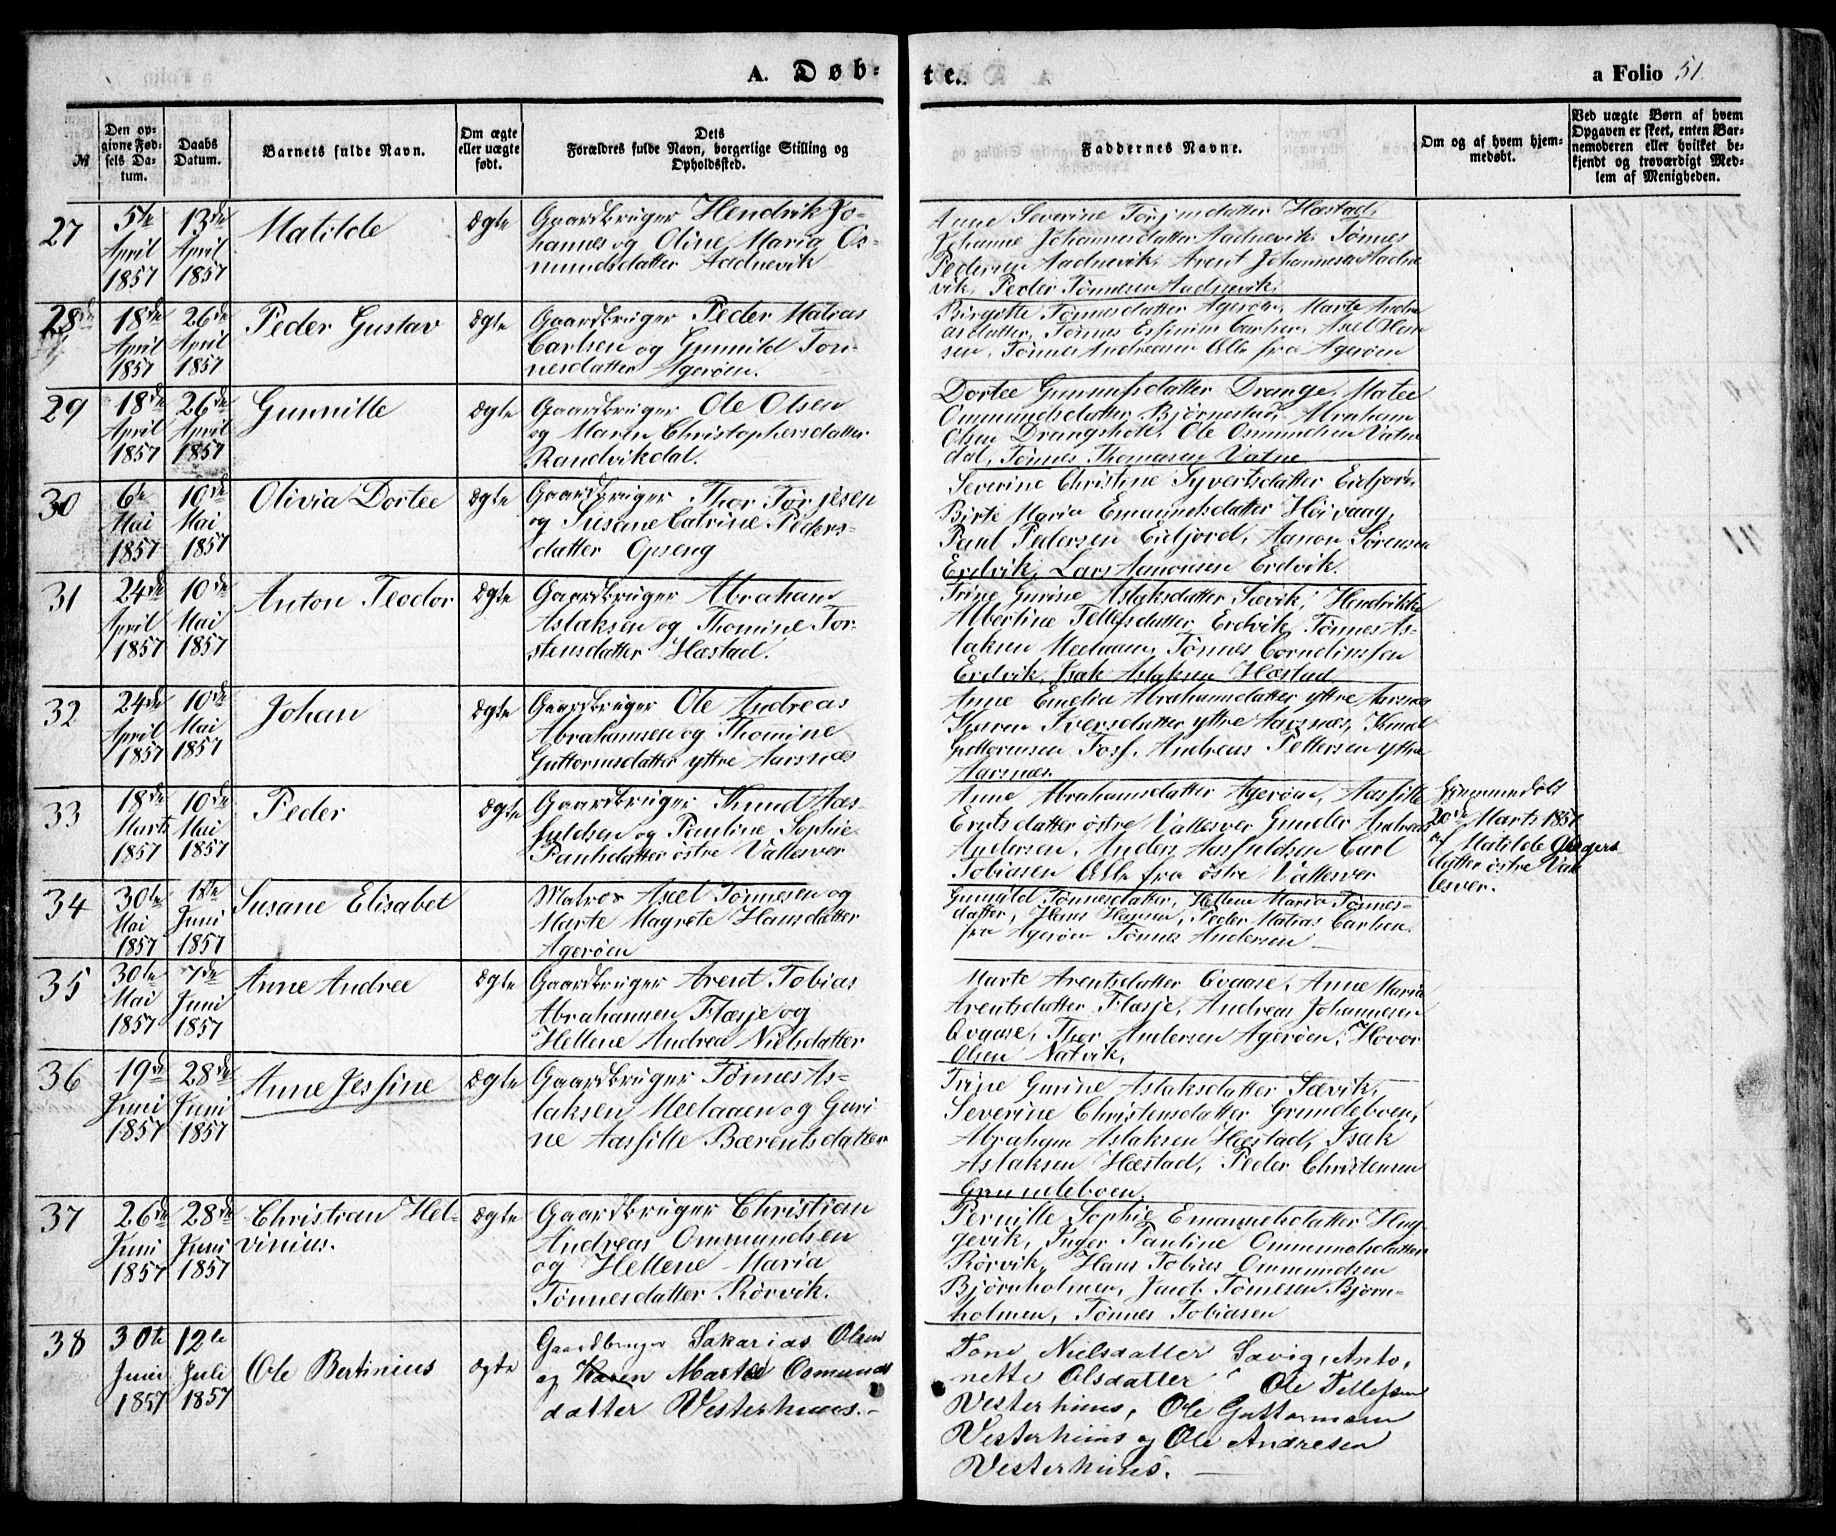 A. Døb-
te.
a Folio 51.
№
Den op-
givne Fød-
sels Da-
tum.
Daabs
Datum.
Barnets fulde Navn.
Om ægte
eller uægte
født.
Dets
Forældres fulde Navn, borgerlige Stilling og
Opholdssted.
Faddernes Navne.
Om og af hvem hjem-
medøbt.
Ved uægte Børn af hvem
Opgaven er skeet, enten Bar-
nemoderen eller hvilket be-
kjendt og troværdigt Med-
lem af Menigheden.
27
5te
April
1857
13de
April
1857
Matilde
ægte
Gaardbruger Hendrik Jo-
hannes og Oline Maria Os-
mundsdatter Aadnevik
Anne Severine Torjusdatter Hæstad,
Johanne Johannesdatter Aadnevik, Tønnes
Pedersen Aadnevik, Arent Johannesen Aadne
vik, Peder Tønnesen Aadnevik.
28de
18de
April
1857
26de
April
1857
Peder Gustav
ægte
Gaardbruger Peder Matias
Carlsen og Gunnild Tøn-
nesdatter Agerøen.
Birgitte Tønnesdatter Agerøen, Marte Andre
asdatter, Tønnes Carlsen, Axel Han
sen, Tønnes Andreasen Alle fra Agerøen
29
18de
April
1857
26de
April
1857
Gunnille
ægte
Gaardbruger Ole Olsen
og Maren Christophersdatter
Randvikdal.
Dortee Gunnulfsdatter Drange, Matee
Ommundsdatter Bjørnestad, Abraham
Olsen Drangsholt, Ole Osmundsen Vatne
dal, Tønnes Thomasen Vatne
30
6te
Mai
1857
10de
Mai
1857
Olivia Dortee
ægte
Gaardbruger Thor Torjesen
og Susane Catrine Peders-
datter Opseng
Severine Christine Syvertsdatter Eidjord,
Birte Maria Emanuelsdatter Høivaag,
Paul Pedersen Eidjord, Aanon Sørensen
Erdvik, Lars Aanonsen Erdvik.
31
24de
April
1857
10de
Mai
1857
Anton Teodor
ægte
Gaardbruger Abraham
Aslaksen og Thomine Tor-
stensdatter Hæstad.
Trine Gurine Aslaksdatter Sævik, Hendrikke
Albertine Tellefsdatter Erdvik, Tønnes As-
laksen Meelaaen, Tønnes Corneliussen
Erdvik, Isak Aslaksen Hæstad
32
24de
April
1857
10de
Mai
1857
Johan
ægte
Gaardbruger Ole Andreas
Abrahamsen og Thomine
Guttormsdatter yttre Aarsnæs
Anne Emelia Abrahamsdatter yttre Aarsnæs
Karen Iversdatter yttre Aarsnæs, Knud
Guttormsen Foss, Andreas Pettersen yttre
Aarsnæs.
33
18de
Marts
1857
10de
Mai
1857
Peder
ægte
Gaardbruger Knud Aas-
fuldsen og Pauline Sophie
Paulsdatter østre Vallesver
Anne Abrahamsdatter Agerøen, Aasfille
datter østre Vallesver Gunder Andreas
Andersen, Anders Aasfuldsen Carl
Tobiasen Alle fra østre Vallesver
Hjemmedøbt
20de Marts 1857
af Matilde
datter østre Val
lesver.
34
30te
Mai
1857
1ste
Juni
1857
Susane Elisabet
Matros Axel Tønnesen og
Marte Magrete Hansdatter
Agerøen
Gunnild Tønnesdatter, Hellene Maria Tønnes-
datter, Hans Hansen, Peder Matias Carlsen
fra Agerøen Tønnes Andersen
35
30te
Mai
1857
7de
Juni
1857
Anne Andree
ægte
Gaardbruger Arent Tobias
Abrahamsen Flasje og
Hellene Andrea Nielsdatter
Marte Arentsdatter Qvaase, Anne Maria
Arentsdatter Flasje, Andreas Johannesen
Qvaase, Thor Andersen Agerøen, Hovor
Olsen Natvik,
36
19de
Juni
1857
28de
Juni
1857
Anne Jessine
ægte
Gaardbruger Tønnes As-
laksen Meelaaen og Guri-
ne Aasfille Bærentsdatter
Trine Gurine Aslaksdatter Sævik,
Severine Christensdatter Grundeboen,
Abraham Aslaksen Hæstad, Isak
Aslaksen Hæstad, Peder Christensen
Grundeboen.
37
26de
Juni
1857
28de
Juni
1857
Christian Hel-
vinius.
ægte
Gaardbruger Christian
Andreas Ommundsen
og Hellene Maria
Tønnesdatter Rørvik.
Pernille Sophie Emanuelsdatter Hug-
gevik, Inger Pauline Ommundsdatter
Rørvik, Hans Tobias Ommundsen
Bjørnholmen, Jacob Tønnesen Bjørn-
holmen, Tønnes Tobiasen
38
30te
Juni
1857
12te
Juli
1857
Ole Bertinius
ægte
Gaardbruger Sakarias Olsen
og Karen Marte Osmunds
datter Vesterhuus.
Tone Nielsdatter Sævig, Anto,
nette Olsdatter Ole Tellefsen
Vesterhuus, Ole Guttormsen
Vesterhuus og Ole Andresen
Vesterhuus.